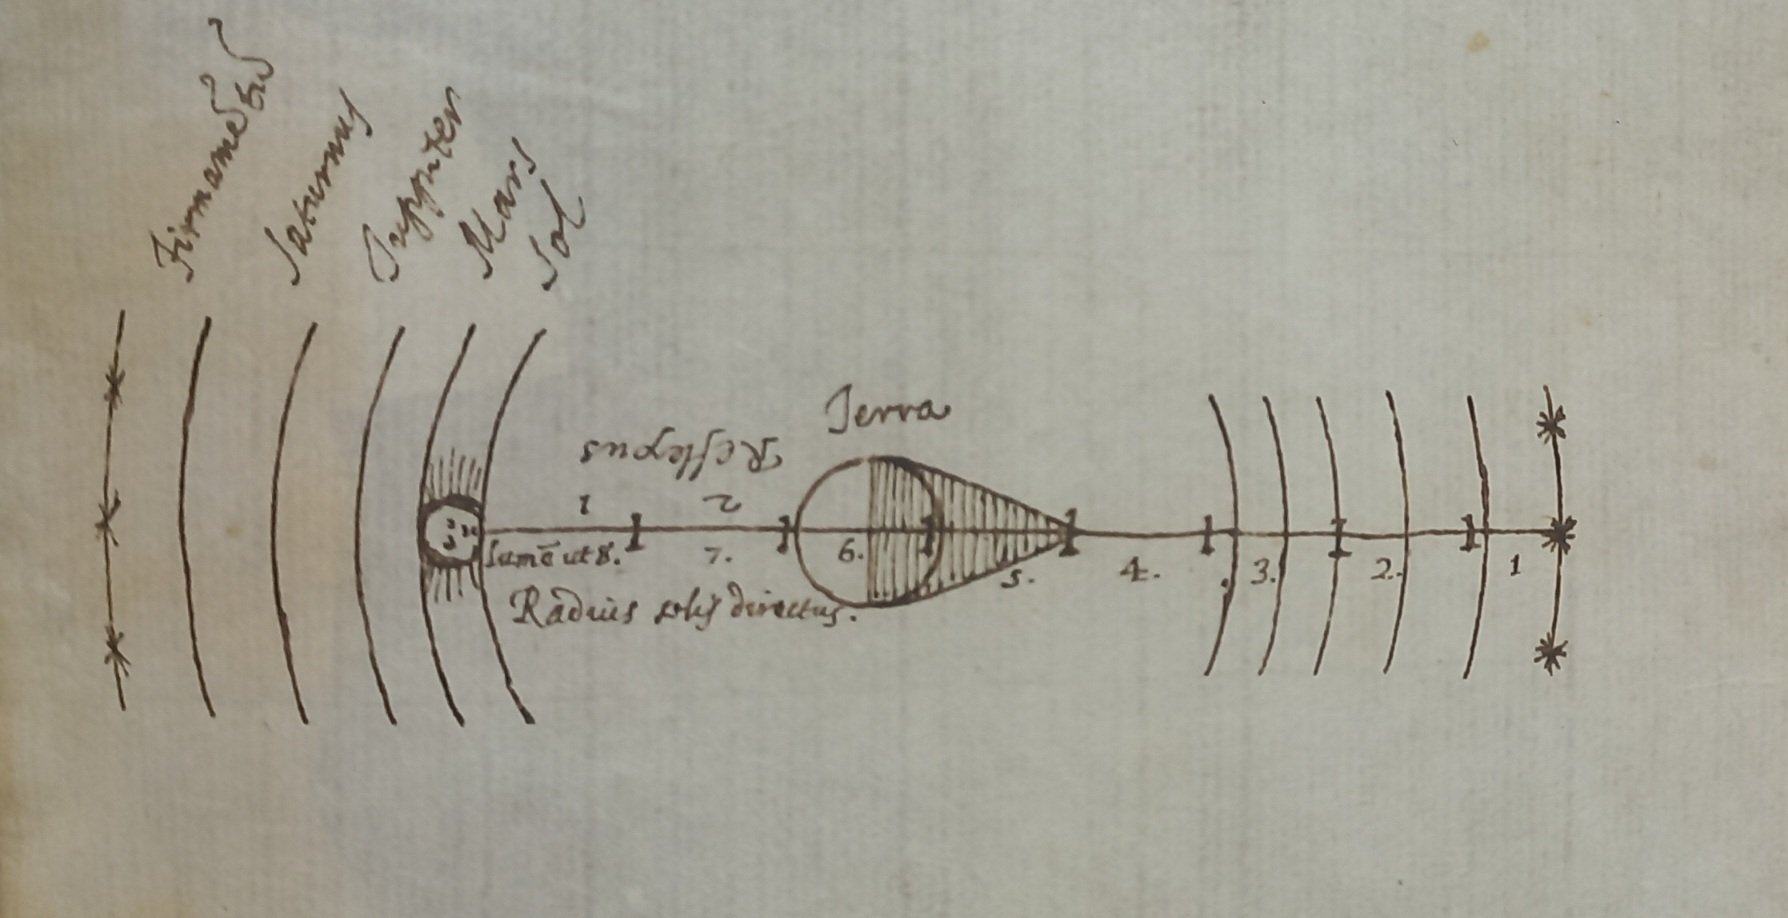 Saturnus
Juppiter
Mars
Sol
Terra
Reflexus
1 2
ut 8. 7. 6. 5. 4. 3. 2. 1
Radius solis directus.